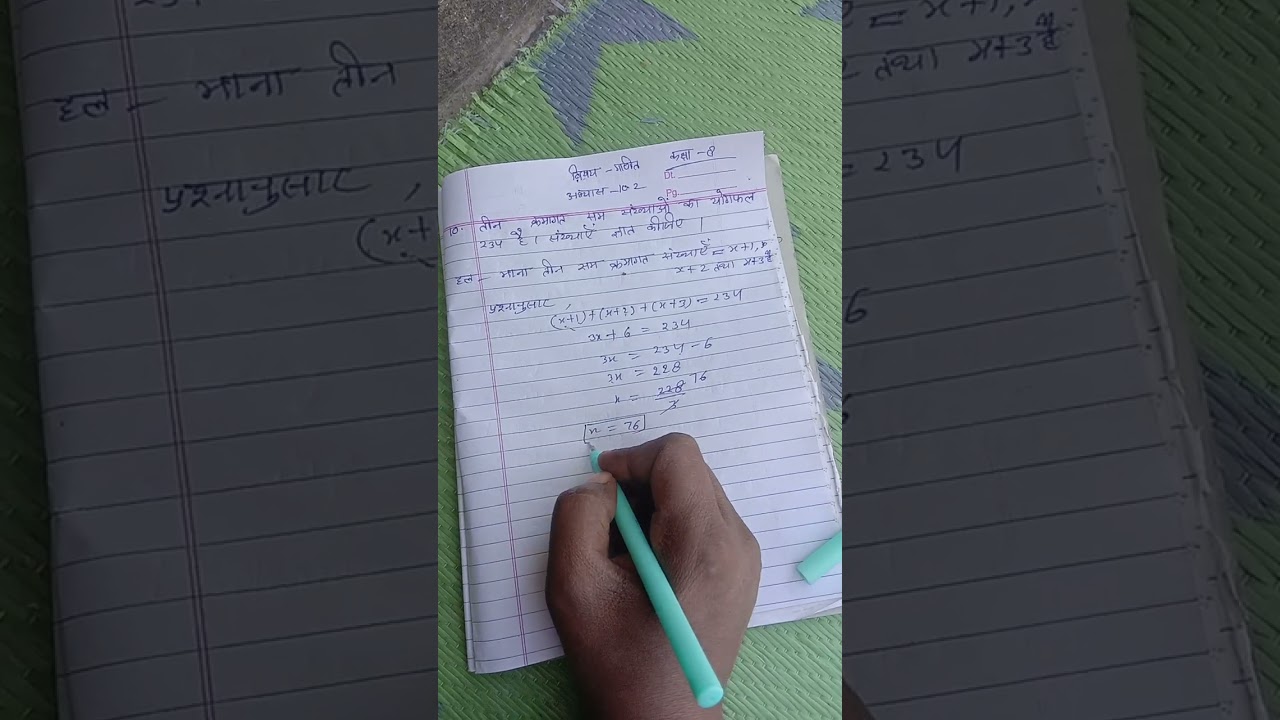 विषय - गणित कक्षा - 8
Dt.
अभ्यास - 10.2
Pg.
10. तीन क्रमागत सम संख्याओं का योगफल
234 है। संख्याएँ ज्ञात कीजिए।
हल - माना तीन सम क्रमागत संख्याएँ = x+1,
x+2 तथा x+3 है
प्रश्नानुसार,
(x+1)+(x+2)+(x+3) = 234
3x+6 = 234
3x = 234-6
3x = 228
x = 228/3 76
x = 76